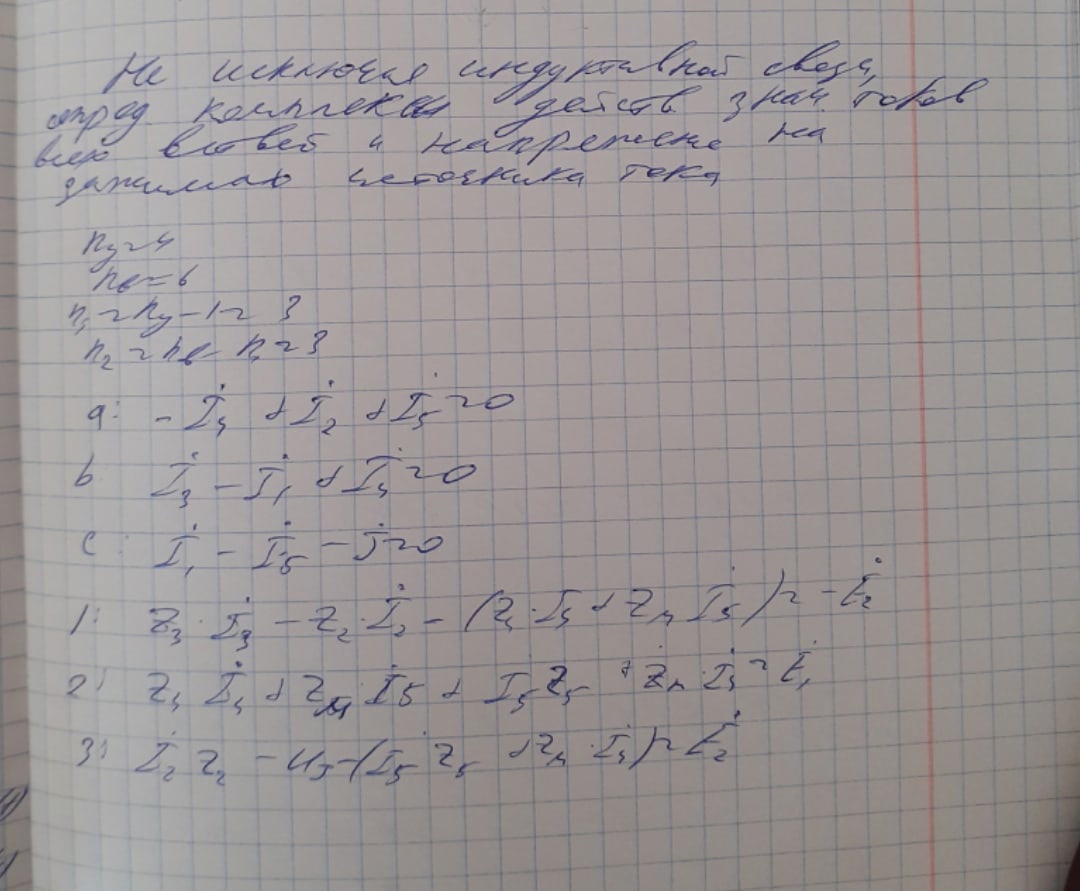 Не исключая индуктивной связи,
опред комплексн действ знач токов
всех ветвей и напряжение на
зажимах источника тока
nу=4
nв=6
n₁=nу-1=3
n₂=nв-n₁=3
a: -İ₄+İ₂+İ₅=0
b İ₃-İ₁+İ₄=0
c: İ₁-İ₅-J̇=0
1: Z₃·İ₃-Z₂·İ₂-(Z₄·İ₄+Zₘİ₅)=-Ė₂
2: Z₄İ₄+Zₘ·İ₅+I₅Z₅+Zₘ·İ₄=Ė₁
3: İ₂Z₂-UJ-(İ₅Z₅+Zₘ·İ₄)=Ė₂